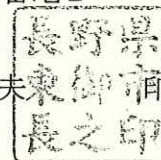 長野県
夫
東御市
長之印